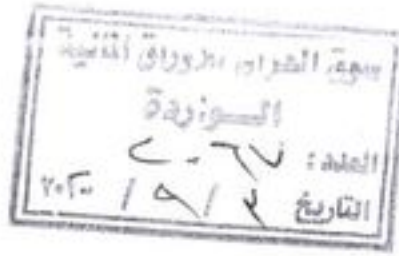 سوق العراق للاوراق المالية
الـــواردة
العدد : ٢٠٦٧
التاريخ ٣ / ٩ / ٢٠٢٠